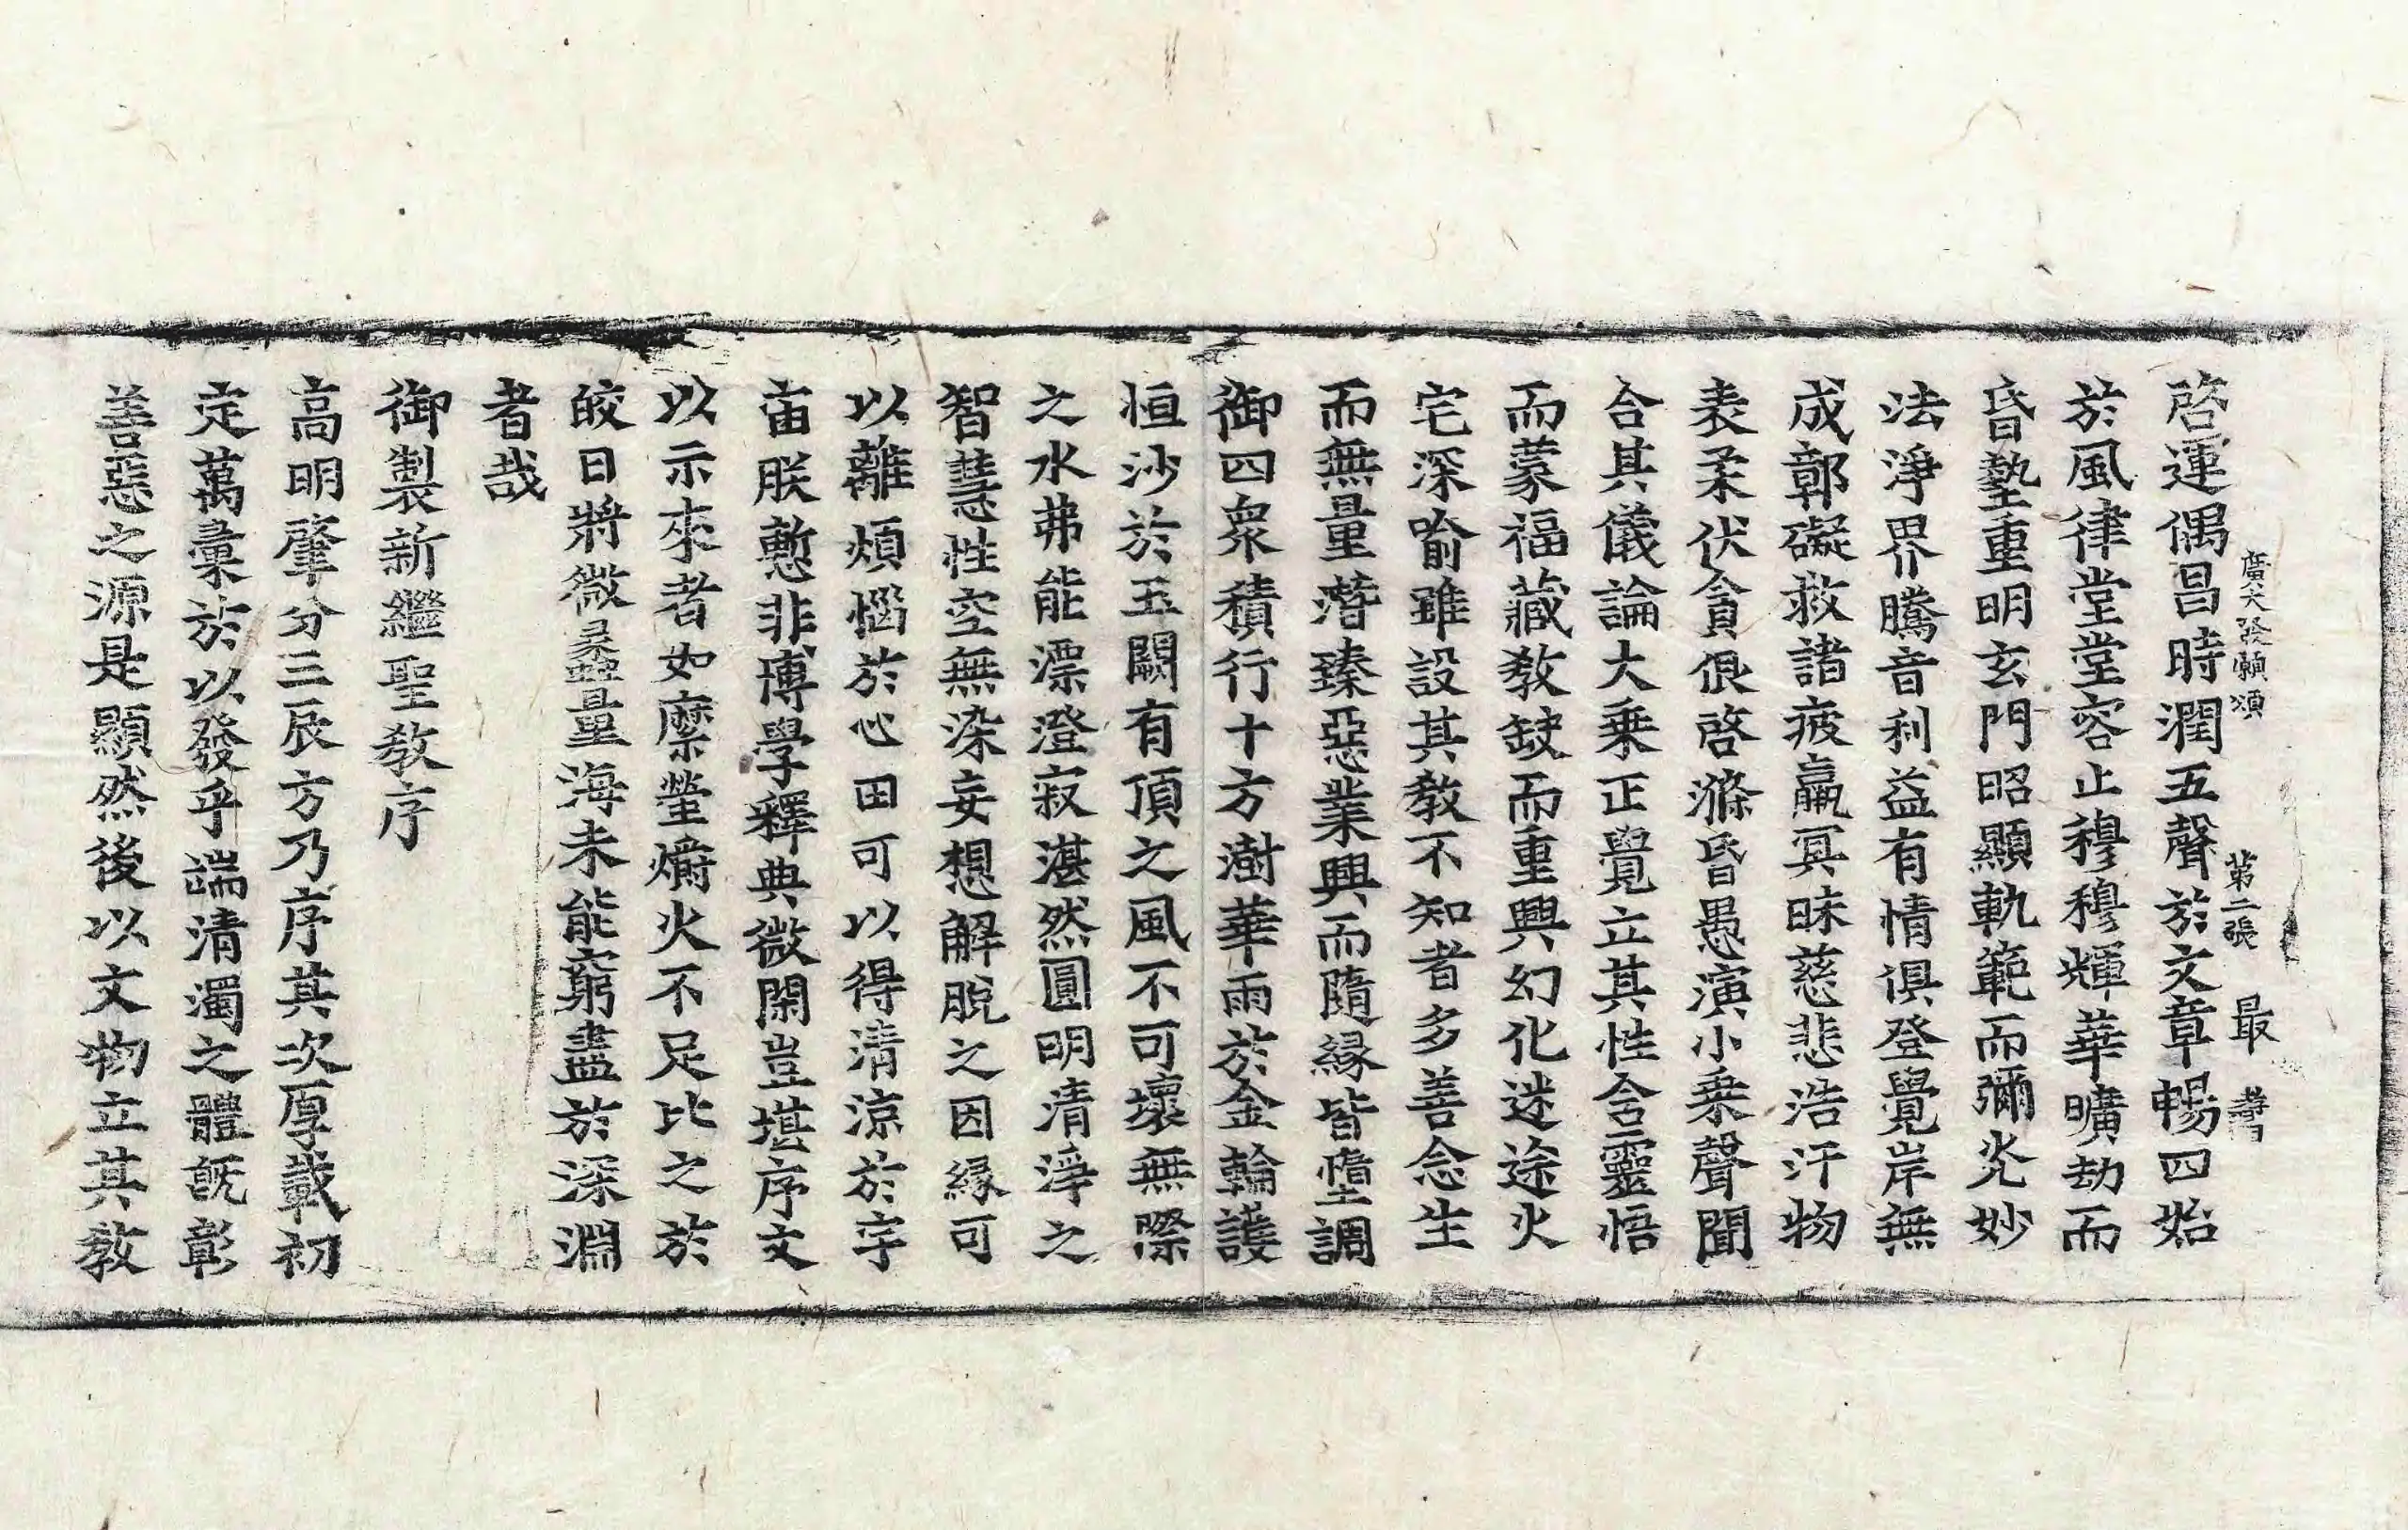 廣大發願頌 第二張 最
啓運偶昌時潤五聲於文章暢四始
於風律堂堂容止穆穆輝華曠劫而
昏墊重明玄門昭顯軌範而彌光妙
法淨界騰音利益有情俱登覺岸無
成鄣礙救諸疲羸冥昧慈悲浩汗物
表柔伏貪佷啓滌昏愚演小乘聲聞
合其儀論大乘正覺立其性含靈悟
而蒙福藏教缺而重興幻化迷途火
宅深喻雖設其教不知者多善念生
而無量潛臻惡業興而隨緣皆墮調
御四衆積行十方澍華雨於金輪護
恒沙於玉闕有頂之風不可壞無際
之水弗能漂澄寂湛然圓明清淨之
智慧性空無染妄想解脫之因緣可
以離煩惱於心田可以得清涼於宇
宙朕慙非博學釋典微閑豈堪序文
以示來者如縻螢爝火不足比之於
皎日將微蠡量海未能窮盡於深淵
者哉
御製新繼聖教序
高明肇分三辰方乃序其次厚載初
定萬彙於以發乎端清濁之體旣彰
善惡之源是顯然後以文物立其教